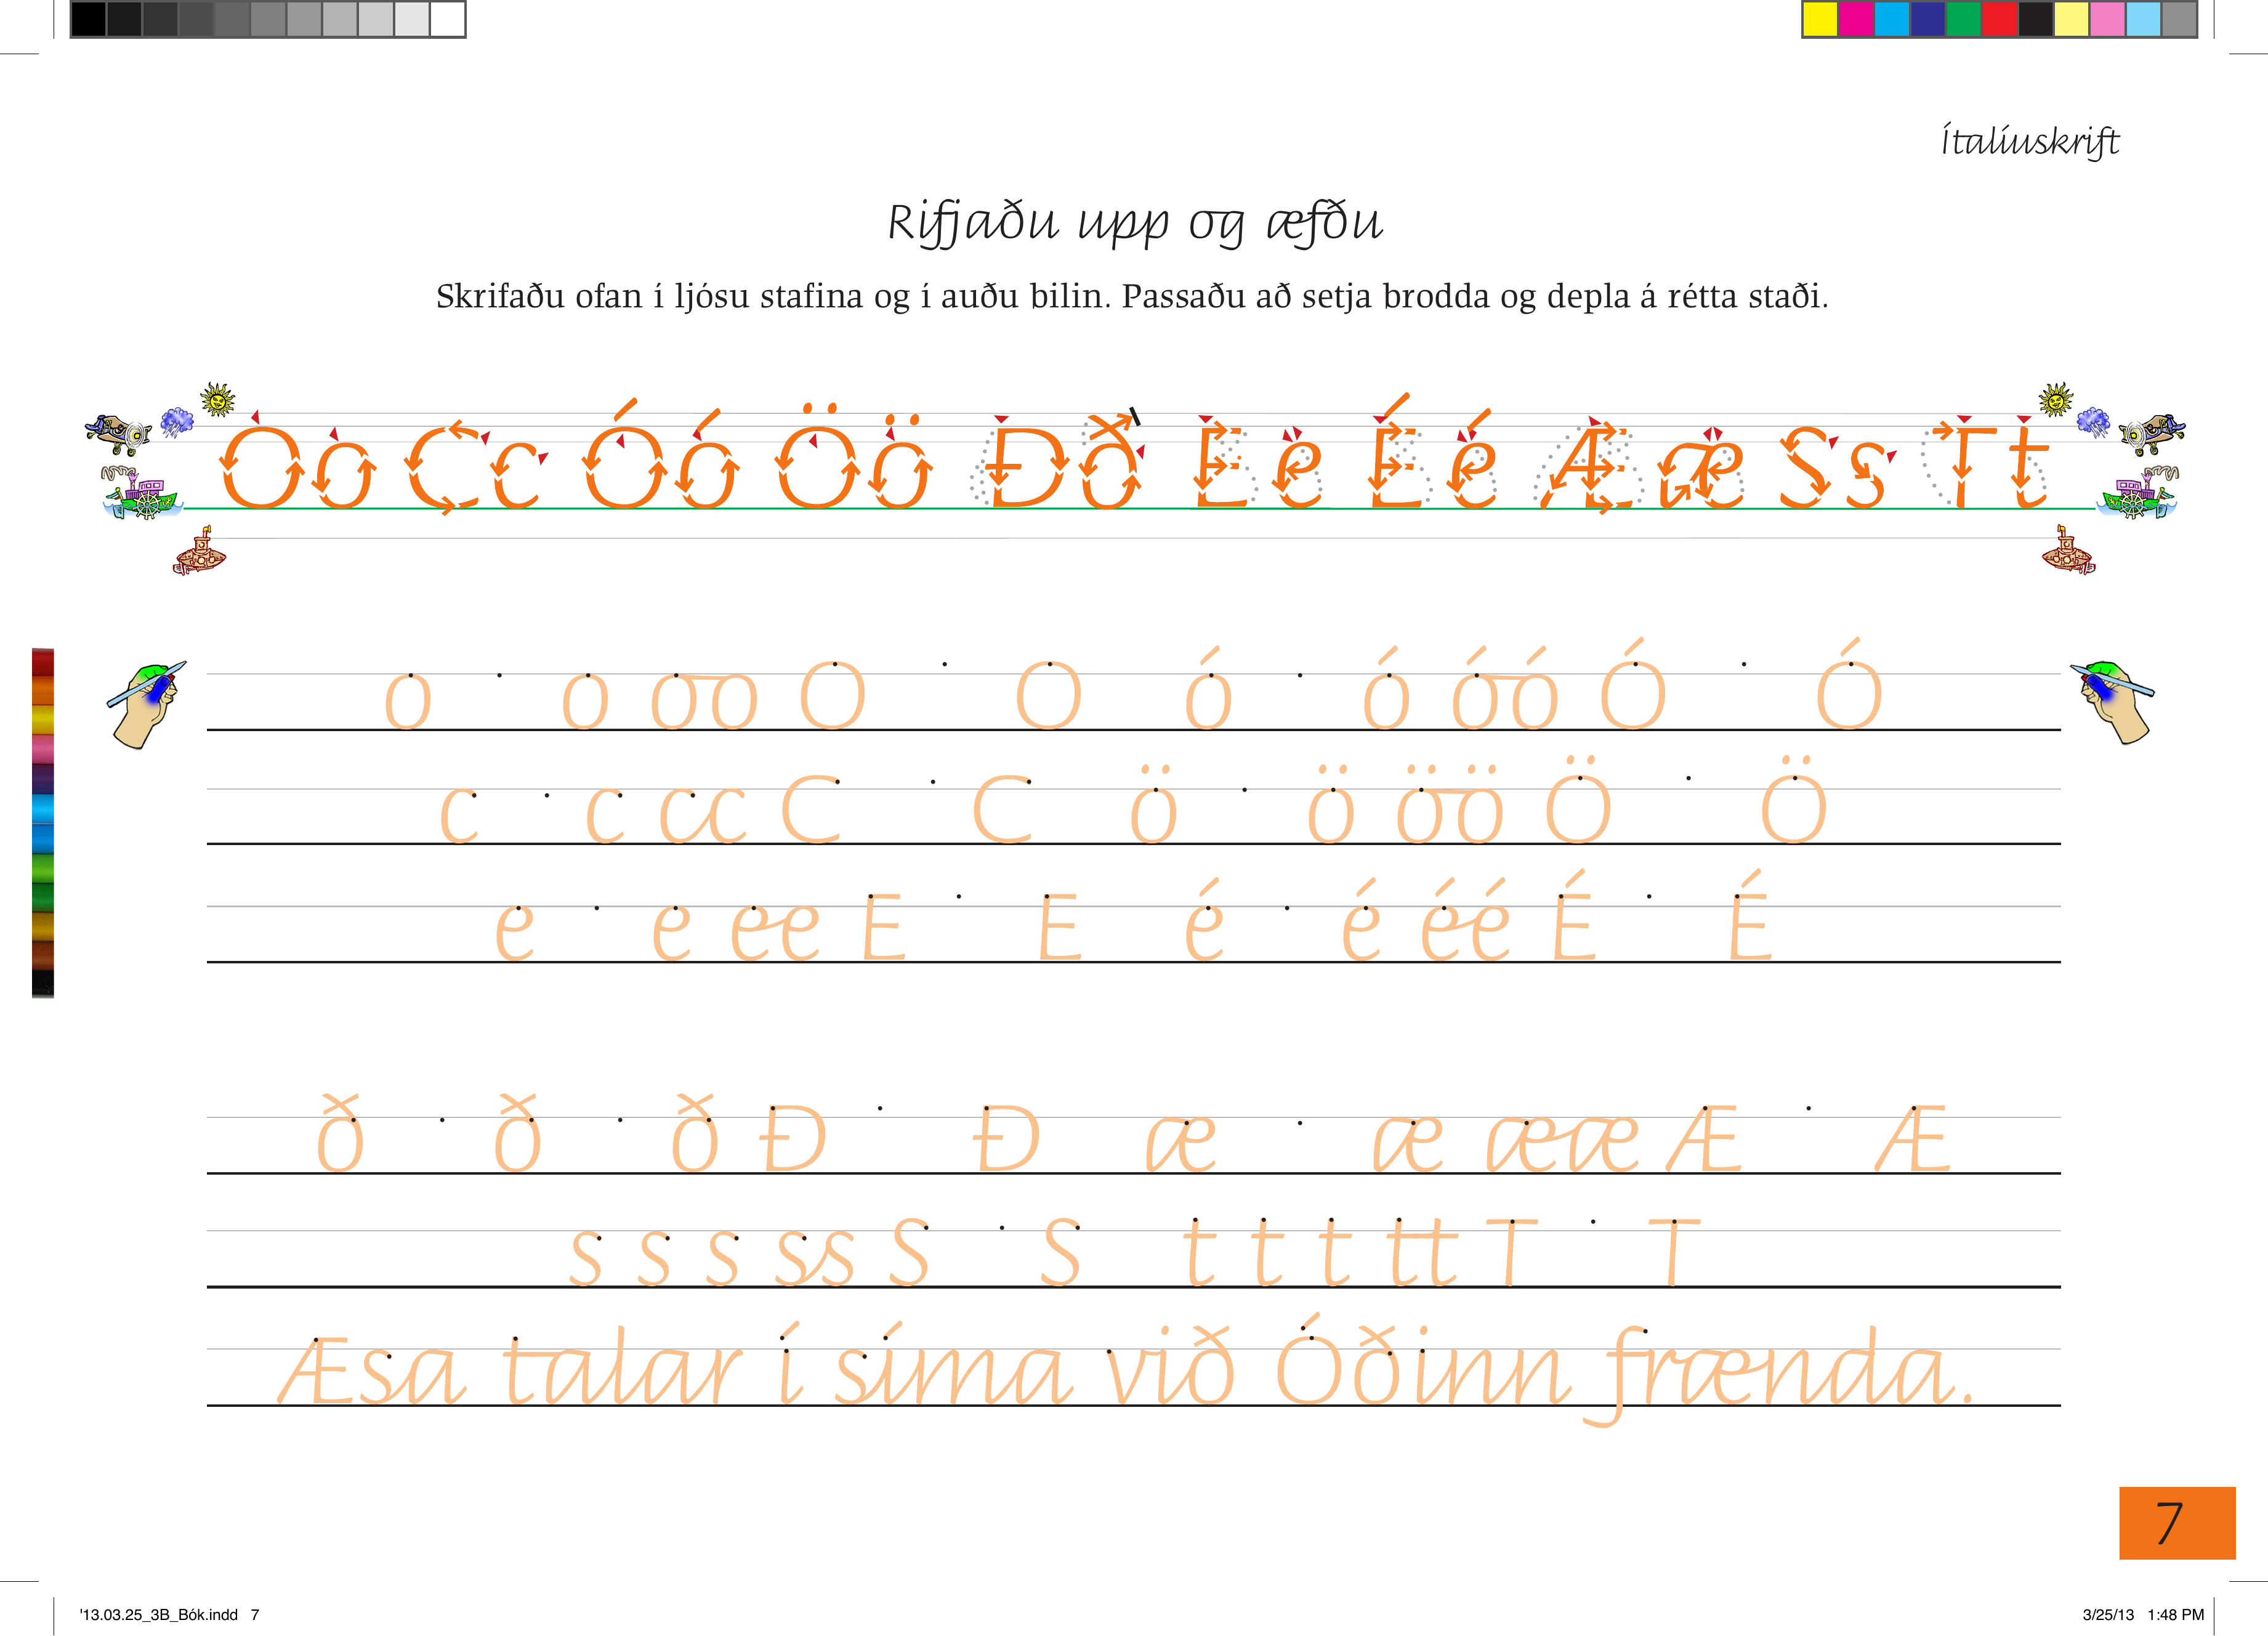 Ítalíuskrift
Rifjaðu upp og æfðu
Skrifaðu ofan í ljósu stafina og í auðu bilin. Passaðu að setja brodda og depla á rétta staði.
O o C c Ó ó Ö ö Ð ð E e É é Æ æ S s T t
o o oo O O ó ó óó Ó Ó
c c cc C C ö ö öö Ö Ö
e e ee E E é é éé É É
ð ð ð Ð Ð æ æ ææ Æ Æ
s s s ss S S t t t tt T T
Æsa talar í síma við Óðinn frænda.
7
'13.03.25_3B_Bók.indd 7 3/25/13 1:48 PM